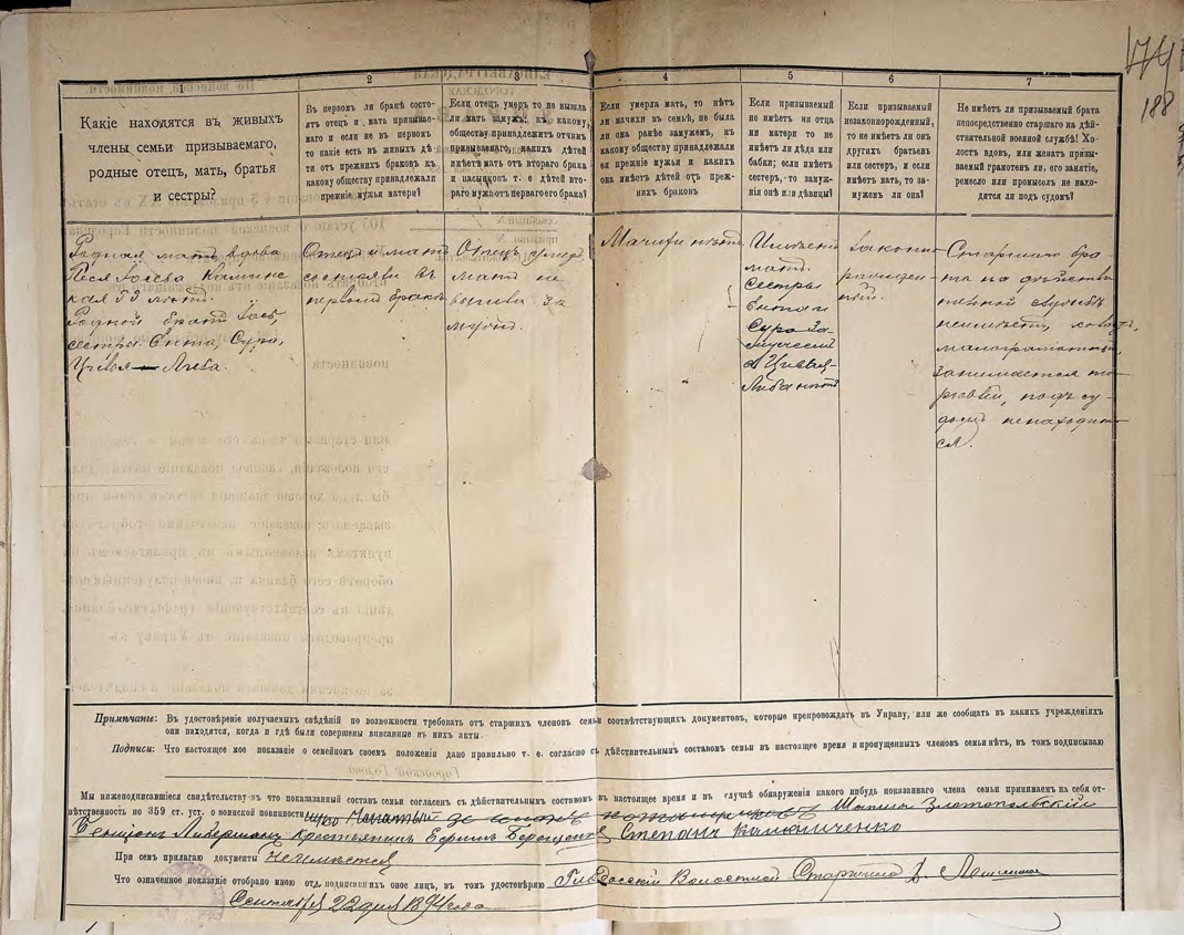 174
188
1
Какіе находятся въ живыхъ
члены семьи призываемаго,
родные отецъ, мать, братья
и сестры?
2
Въ первомъ ли бракѣ состо-
ятъ отецъ и мать призывае-
маго и если не въ первомъ
то какіе есть въ живыхъ дѣ
ти отъ прежнихъ браковъ къ
какому обществу принадлежали
прежніе мужья матери?
3
Если отецъ умеръ то не вышла
ли мать замужъ: къ какому
обществу принадлежитъ отчимъ
призываемаго, какихъ дѣтей
имѣетъ мать отъ втораго брака
и пасынковъ т. е дѣтей вто-
раго мужа отъ перваго его брака?
4
Если умерла мать, то нѣтъ
ли мачихи въ семьѣ, не была
ли она ранѣе замужемъ, къ
какому обществу принадлежали
ея прежніе мужья и какихъ
она имѣетъ дѣтей отъ преж-
нихъ браковъ
5
Если призываемый
не имѣетъ ни отца
ни матери то не
имѣетъ ли дѣда или
бабки; если имѣетъ
сестеръ, то замуж-
нія онѣ или дѣвицы?
6
Если призываемый
незаконнорожденный,
то не имѣетъ ли онъ
другихъ братьевъ
или сестеръ, и если
имѣетъ мать, то за-
мужемъ ли она?
7
Не имѣетъ ли призываемый брата
непосредственно старшаго на дѣй-
ствительной военной службѣ! Хо-
лостъ вдовъ, или женатъ призы-
ваемый грамотенъ ли, его занятіе,
ремесло или промыселъ не нахо-
дится ли подъ судомъ?
Родная мать вдова
Песя Іосева Каминс
кая 53 лѣтъ.
Родной братъ Іось,
сестры: Ента, Сура,
Цивья - Либа.
Отецъ и мать
состояли въ
первомъ бракѣ
Отецъ умеръ,
мать не
вышла за
мужъ.
Мачихи нѣтъ
Имѣетъ
мать.
Сестры
Ента и
Сура за-
мужем
а Цивья-
Либа нѣтъ
Законно-
рожден-
ный.
Старшаго бра-
та на дѣйстви
тельной службѣ
неимѣетъ, холостъ,
малограмотный,
занимается тор-
говлей, подъ су-
домъ ненаходит-
ся.
Примѣчаніе: Въ удостовѣреніе получаемыхъ свѣдѣній по возможности требовать отъ старшихъ членовъ семьи соотвѣтствующихъ документовъ, которые препровождать въ Управу, или же сообщать въ какихъ учрежденіяхъ
они находятся, когда и гдѣ были совершены вписанные въ нихъ акты.
Подписи: Что настоящее мое показаніе о семейномъ своемъ положеніи дано правильно т. е. согласно съ дѣйствительнымъ составомъ семьи въ настоящее время и пропущенныхъ членовъ семьи нѣтъ, въ томъ подписываю
Мы нижеподписавшіеся свидѣтельствуемъ что показанный составъ семьи согласенъ съ дѣйствительнымъ составомъ въ настоящее время и въ случаѣ обнаруженія какого нибудь показаннаго члена семьи принимаемъ на себя от-
вѣтственность по 359 ст. уст. о воинской повинности Златопольскій
Бенціонъ Либерманъ Крестьянинъ Ефимъ Степанъ Калениченко
При семъ прилагаю документы Неимѣется
Что означенное показаніе отобрано мною отъ подписавшихъ оное лицъ, въ томъ удостовѣряю Волостной Старшина
Сентября 22 дня 1894 года